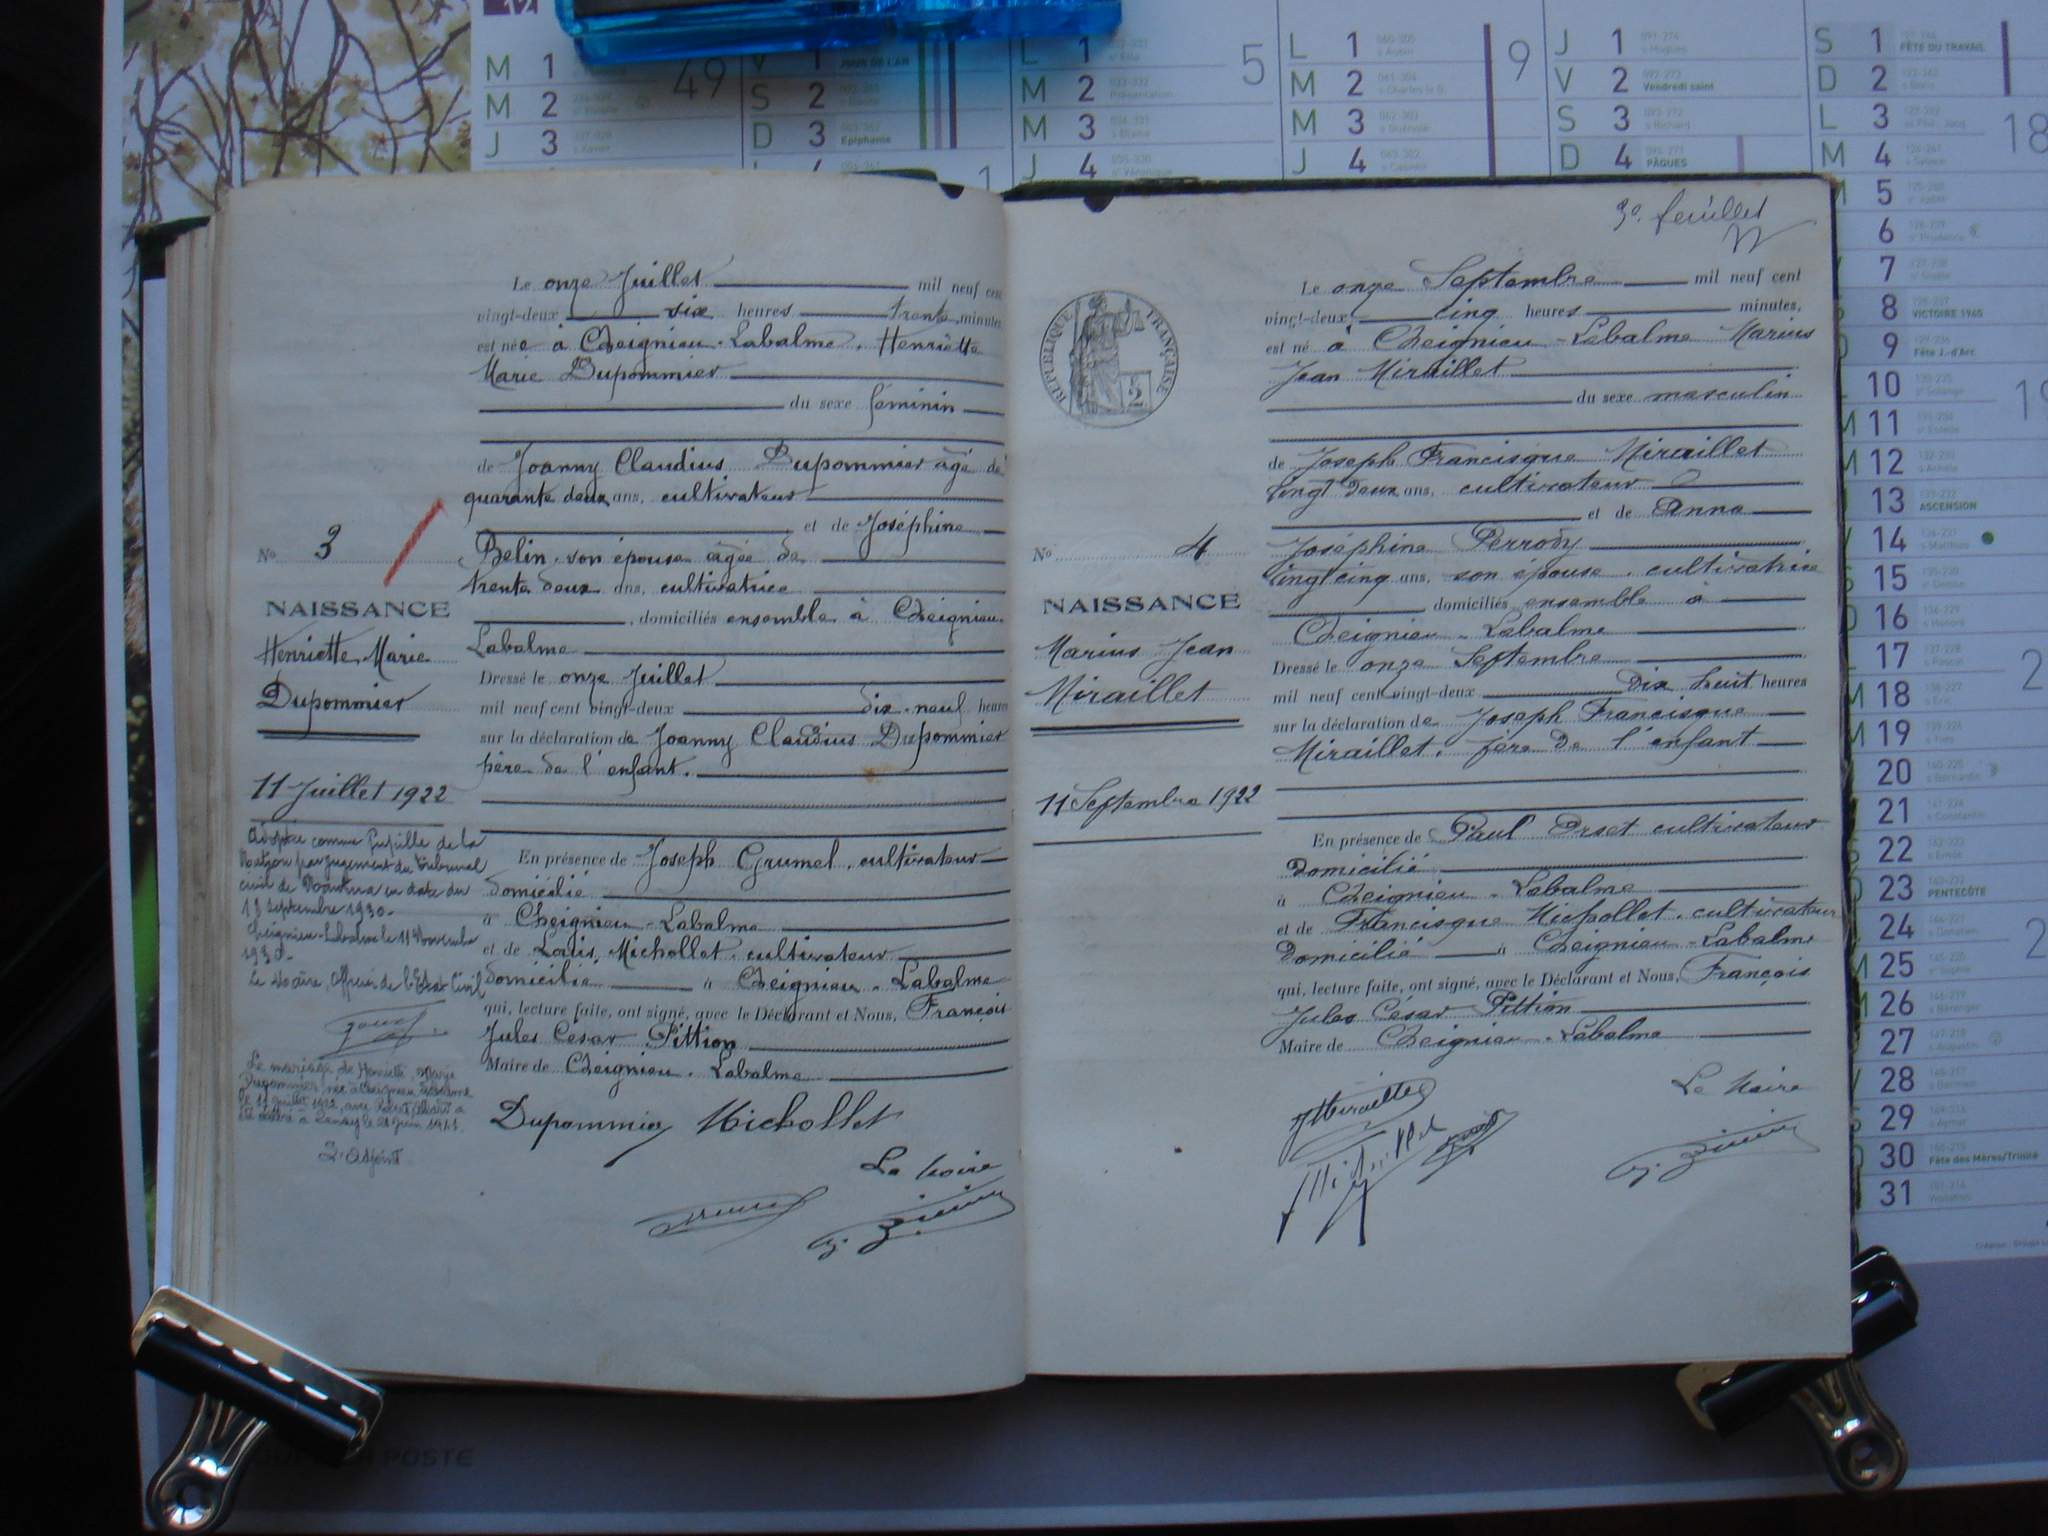 M 1
M 2
J 3
49
V 1 JOUR DE L'AN
S 2
D 3 Epiphanie
1
L 1
M 2
M 3
J 4
5
L 1
M 2
M 3
J 4
9
J 1
V 2 Vendredi saint
S 3
D 4 PÂQUES
S 1 FÊTE DU TRAVAIL
D 2
L 3
M 4
18
5
6
7
8 VICTOIRE 1945
9 Fête J.-d'Arc
10
M 11
M 12
13 ASCENSION
14
15
16
17
M 18
M 19
20
21
22
23 PENTECÔTE
24
M 25
M 26
27
28
29
30 Fête des Mères/Trinité
31
POSTE
Le onze Juillet mil neuf cent
vingt-deux six heures trente minutes
est née à Cheignieu-Labalme, Henriette
Marie Dupommier
du sexe féminin
de Joanny Claudius Dupommier âgé de
quarante deux ans, cultivateur
et de Joséphine
Belin son épouse âgée de
trente deux ans, cultivatrice
, domiciliés ensemble à Cheignieu-
Labalme
Dressé le onze Juillet
mil neuf cent vingt-deux dix-neuf heures
sur la déclaration de Joanny Claudius Dupommier
père de l'enfant.
En présence de Joseph Grumel, cultivateur
domicilié
à Cheignieu-Labalme
et de Louis Michollet, cultivateur
domicilié à Cheignieu-Labalme
qui, lecture faite, ont signé, avec le Déclarant et Nous, François
Jules César Pittion
Maire de Cheignieu-Labalme
Dupommier Michollet
Le Maire
No 3
NAISSANCE
Henriette Marie
Dupommier
11 Juillet 1922
Adoptée comme Pupille de la
Nation par jugement du Tribunal
civil de Nantua en date du
13 septembre 1930.
Cheignieu-Labalme le 11 Novembre
1930.
Le Maire, Officier de l'Etat Civil
Le mariage de Henriette Marie
Dupommier née à Cheignieu Labalme
le 11 juillet 1922, avec
été célébré à le 21 Juin 1941.
L'adjoint
3e feuillet
RÉPUBLIQUE FRANÇAISE
2
Le onze Septembre mil neuf cent
vingt-deux cinq heures minutes,
est né à Cheignieu-Labalme Marius
Jean Miraillet
du sexe masculin
de Joseph Francisque Miraillet
vingt deux ans, cultivateur
et de Anna
Joséphine Perrody
vingt cinq ans, son épouse, cultivatrice
domiciliés ensemble à
Cheignieu-Labalme
Dressé le onze Septembre
mil neuf cent vingt-deux dix huit heures
sur la déclaration de Joseph Francisque
Miraillet, père de l'enfant
En présence de Paul Orset cultivateur
domicilié
à Cheignieu-Labalme
et de Francisque Michollet, cultivateur
domicilié à Cheignieu-Labalme
qui, lecture faite, ont signé, avec le Déclarant et Nous, François
Jules César Pittion
Maire de Cheignieu-Labalme
Le Maire
JMiraillet
No 4
NAISSANCE
Marius Jean
Miraillet
11 Septembre 1922